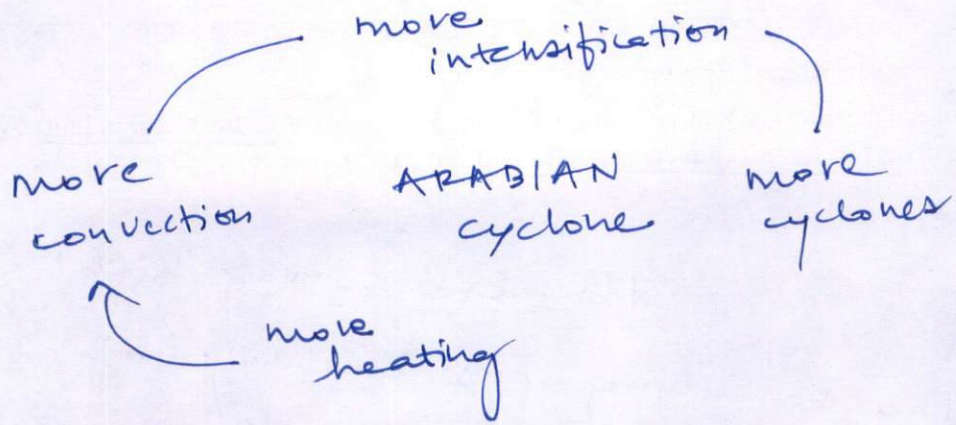 more
intensification
more
convection
ARABIAN
cyclone
more
cyclones
more
heating